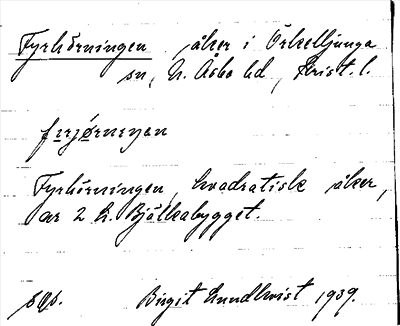 Fyrhörningen åker i Örkelljunga
sn, N. Åsbo hd, Krist. l.
Fyrhörningen, kvadratisk åker,
ar 2 h. Bjälkabygget.
sgs. Birgit Lundkvist 1939.